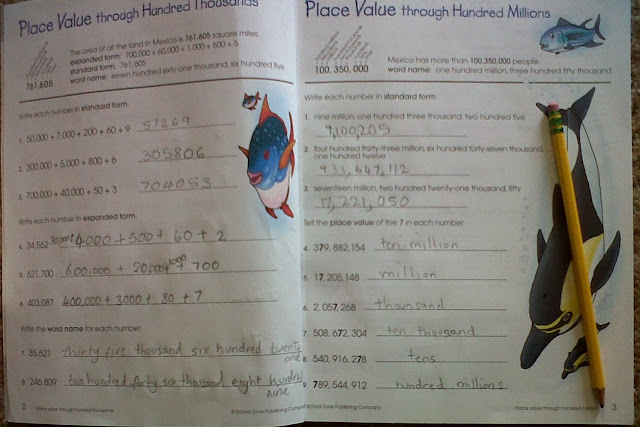 Place Value through Hundred Thousands
The area of all the land in Mexico is 761,605 square miles.
expanded form: 700,000 + 60,000 + 1,000 + 600 + 5
standard form: 761,605
word name: seven hundred sixty-one thousand, six hundred five
761,605
Write each number in standard form.
1. 50,000 + 7,000 + 200 + 60 + 9 57269
2. 300,000 + 5,000 + 800 + 6 305806
3. 700,000 + 40,000 + 50 + 3 704053
Write each number in expanded form.
4. 34,562 30,000+ 4000 + 500 + 60 + 2
5. 621,700 600,000 + 20,000 + 1000 + 700
6. 403,087 400,000 + 3000 + 80 + 7
Write the word name for each number.
7. 35,621 thirty five thousand six hundred twenty
one
8. 246,809 two hundred forty six thousand eight hundred
nine
2 Place value through hundred thousands © School Zone Publishing Company
Place Value through Hundred Millions
100,350,000
Mexico has more than 100,350,000 people.
word name: one hundred million, three hundred fifty thousand
Write each number in standard form.
1. nine million, one hundred three thousand, two hundred five
9,100,205
2. four hundred thirty-three million, six hundred forty-seven thousand,
one hundred twelve
933,647,112
3. seventeen million, two hundred twenty-one thousand, fifty
17,221,050
Tell the place value of the 7 in each number.
4. 379,882,154 ten-million
5. 17,205,148 million
6. 2,057,268 thousand
7. 508,672,304 ten thousand
8. 540,916,278 tens
9. 789,544,912 hundred millions
© School Zone Publishing Company Place value through hundred millions 3